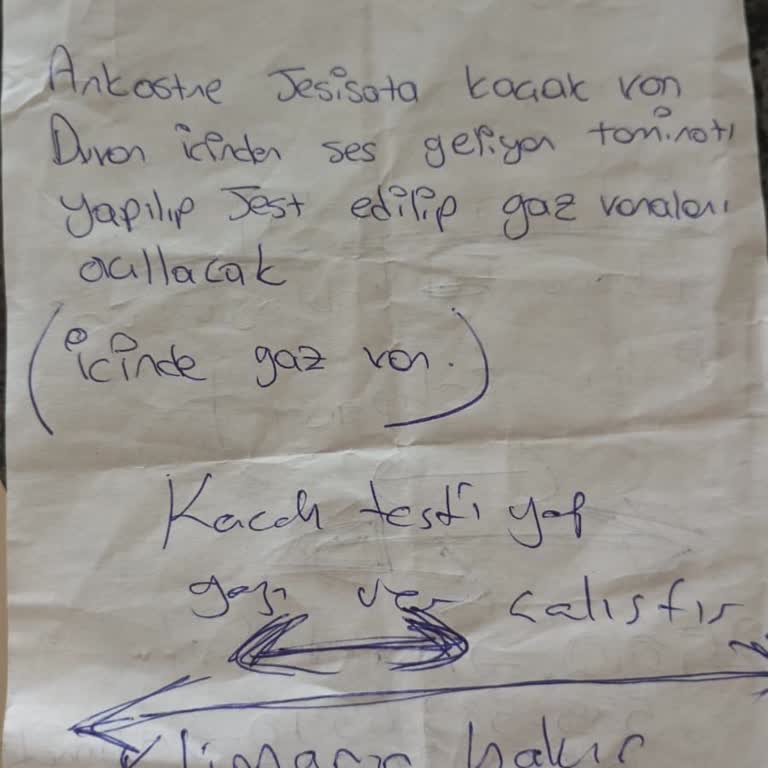 Ankastre Tesisata kaçak var
Duvar içinden ses geliyor tamiratı
yapılıp Test edilip gaz vanaları
açıllacak
(içinde gaz var.)
Kacak testi yap
gazı ver calıstır
bakır